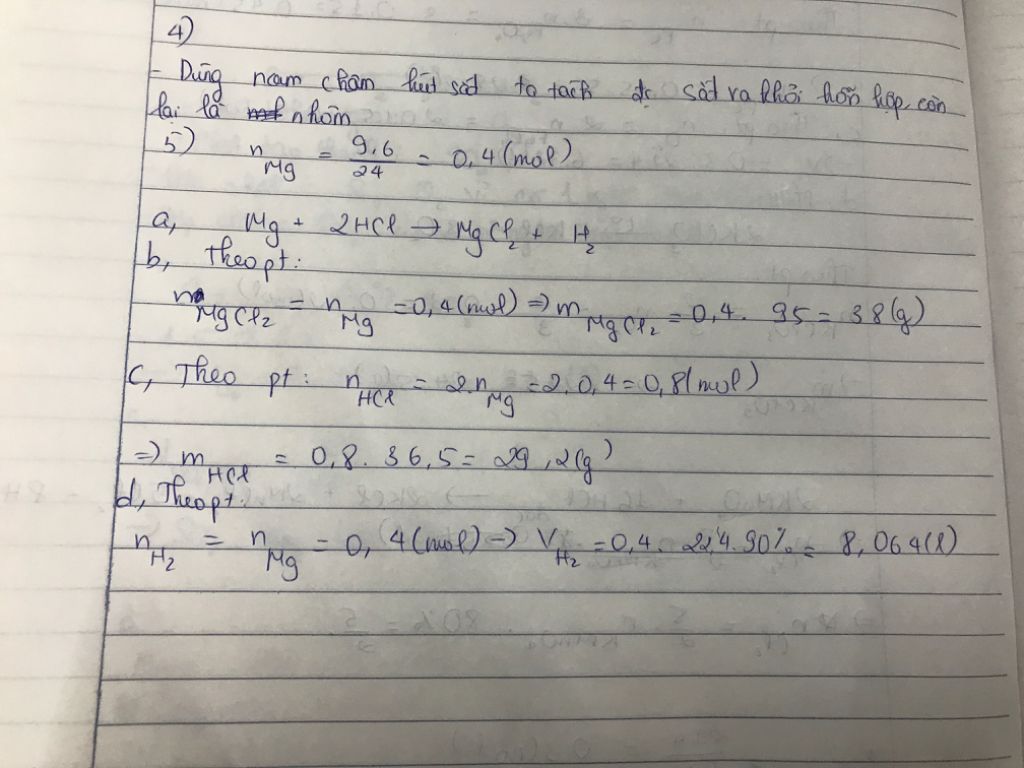 4)
- Dùng nam châm hút sắt ta tách đc sắt ra khỏi hỗn hợp còn
lại là nhôm
5) n Mg = 9,6/24 = 0,4 (mol)
a, Mg + 2HCl → MgCl2 + H2
b, Theo pt:
n MgCl2 = n Mg = 0,4 (mol) => m MgCl2 = 0,4. 95 = 38 (g)
c, Theo pt: n HCl = 2.n Mg = 2.0,4 = 0,8 (mol)
=> m HCl = 0,8. 36,5 = 29,2 (g)
d, Theo pt:
n H2 = n Mg = 0,4 (mol) → V H2 = 0,4. 22,4. 90% = 8,064 (l)